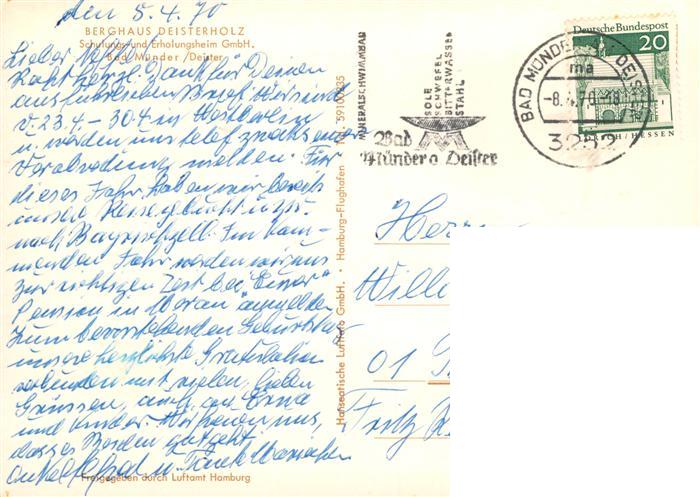 den 5.4.70
BERGHAUS DEISTERHOLZ
Schulungs- und Erholungsheim GmbH.
Bad Münder / Deister
Lieber Willi!
Recht herzl. Dank für Deinen
ausführlichen Brief. Wir sind
v. 23.4 - 30.4 in Westberlin
u. werden uns telef. zwecks
Verabredung melden. Für
dieses Jahr haben wir bereits
unsere Reise gebucht u. zw.
nach Bayrischzell. Im kom-
menden Jahr werden wir uns
zur richtigen Zeit bei
Pension in Meran anmelden.
Zum bevorstehenden Geburtstag
unsere herzlichste Gratulation
verbunden mit vielen, lieben
Grüssen, auch an Erna
und Kinder. Wir freuen uns,
dass es Beiden gut geht.
Onkel u. Tante
Freigegeben durch Luftamt Hamburg
Hanseatische Luftfoto GmbH. • Hamburg-Flughafen
MINERALSCHWIMMBAD
SOLE
SCHWEFEL
BITTERWASSER
STAHL
Bad
Münder a Deister
BAD MÜNDER DEISTER
ma
-8.4.70-18
3252
Deutsche Bundespost
20
LORSCH / HESSEN
Herrn
Willi
01
Fritz